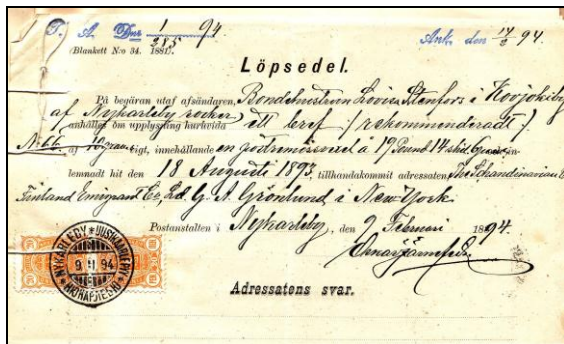 T. A. Dnr 1/285 94.
Ank. den 94.
(Blankett N:o 34. 1881).
Löpsedel.
På begäran utaf afsändaren, Bondehustrun Lovisa Stenfors i Kovjoki by
af Nykarleby socken
anhålles om upplysning huruvida ett bref / rekommenderadt /
N:o 66. af vigt, innehållande en 19 Pound 14 in-
lemnadt hit den 18 Augusti 1893, tillhandakommit adressaten, The Skandinavian &
Finland Emigrant Co, Ld. G. A. Grönlund i New York.
Postanstalten i Nykarleby, den 9 Februari 1894.
NYKARLEBY * UUSIKAARLEPYY
9 II 94
Adressatens svar.